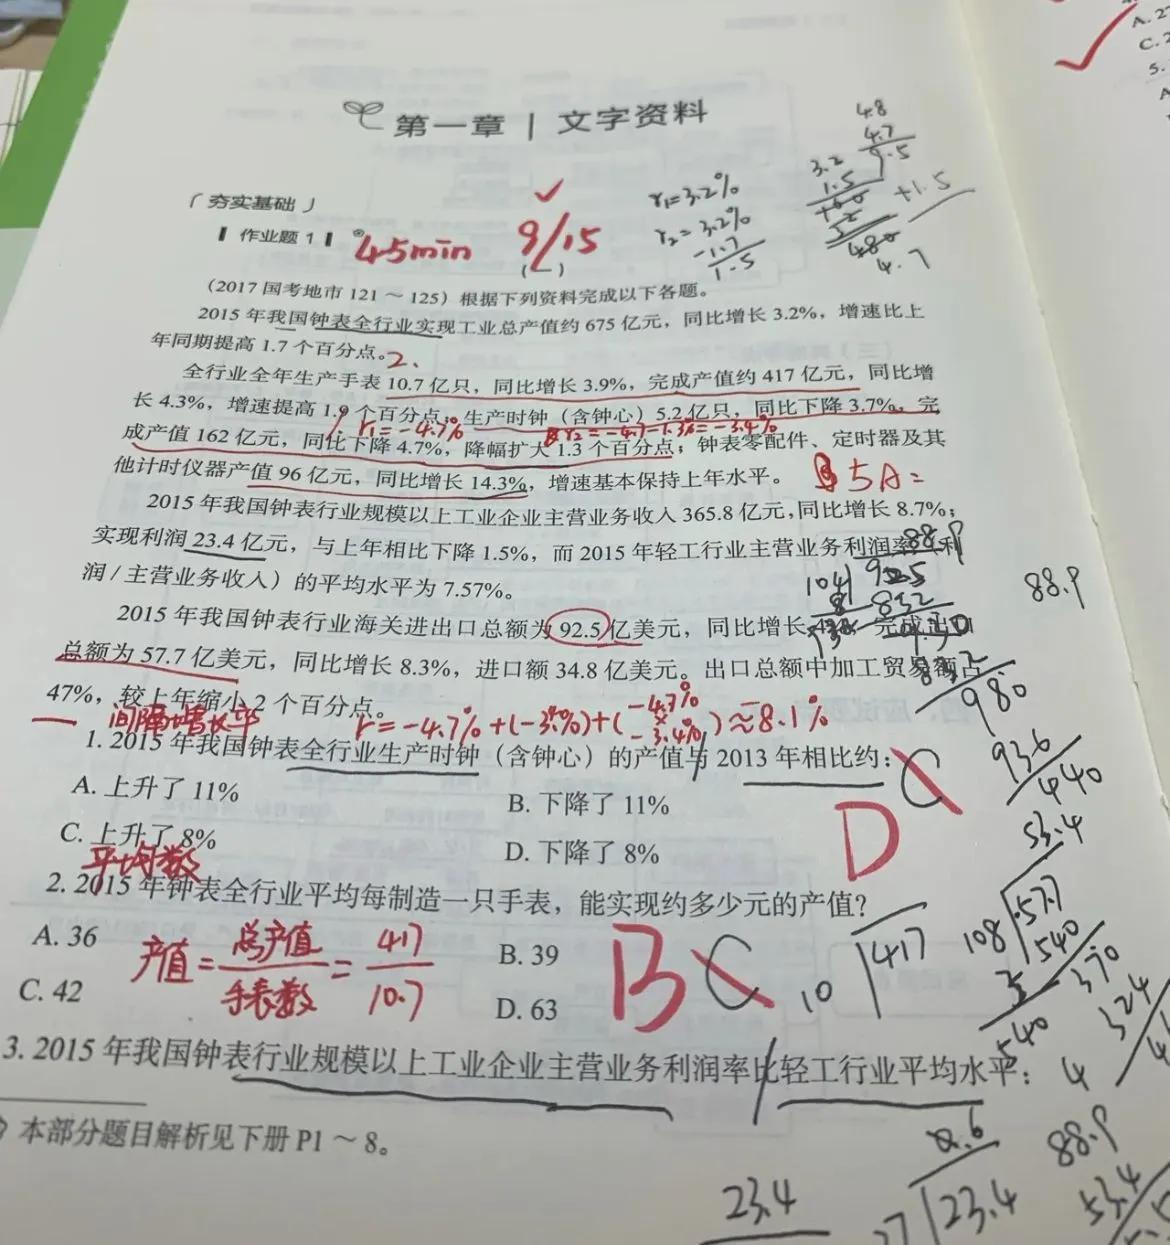 第一章 | 文字资料
4.8
4.7
9.5
3.2
1.5
+1.5
4.7
r₁=3.2%
r₂=3.2%
-1.7
1.5
「夯实基础」
作业题 1
45min
9/15
(一)
(2017 国考地市 121 ~ 125) 根据下列资料完成以下各题。
2015 年我国钟表全行业实现工业总产值约 675 亿元，同比增长 3.2%，增速比上
年同期提高 1.7 个百分点。2、
全行业全年生产手表 10.7 亿只，同比增长 3.9%，完成产值约 417 亿元，同比增
长 4.3%，增速提高 1.9 个百分点；生产时钟（含钟心）5.2 亿只，同比下降 3.7%，完
1. r₁=-4.7% r₂=-4.7-1.3%=-3.4%
成产值 162 亿元，同比下降 4.7%，降幅扩大 1.3 个百分点；钟表零配件、定时器及其
他计时仪器产值 96 亿元，同比增长 14.3%，增速基本保持上年水平。
5A=
2015 年我国钟表行业规模以上工业企业主营业务收入 365.8 亿元，同比增长 8.7%；
实现利润 23.4 亿元，与上年相比下降 1.5%，而 2015 年轻工行业主营业务利润率
88.9
润 / 主营业务收入）的平均水平为 7.57%。
104
925
832
88.9
2015 年我国钟表行业海关进出口总额为 92.5 亿美元，同比增长
总额为 57.7 亿美元，同比增长 8.3%，进口额 34.8 亿美元。出口总额中加工贸易额占
47%，较上年缩小 2 个百分点。
980
936
440
间隔增长率
r=-4.7%+(-3.4%)+(-4.7%×-3.4%)≈8.1%
1. 2015 年我国钟表全行业生产时钟（含钟心）的产值与 2013 年相比约：
C
D
A. 上升了 11%
B. 下降了 11%
C. 上升了 8%
D. 下降了 8%
53.4
108
577
540
370
324
平均数
2. 2015 年钟表全行业平均每制造一只手表，能实现约多少元的产值？
A. 36
B. 39
C. 42
D. 63
产值=总产值/手表数=417/10.7
B
C
10
417
540
4
3. 2015 年我国钟表行业规模以上工业企业主营业务利润率比轻工行业平均水平：
本部分题目解析见下册 P1 ~ 8。
23.4
23.4
88.9
53.4